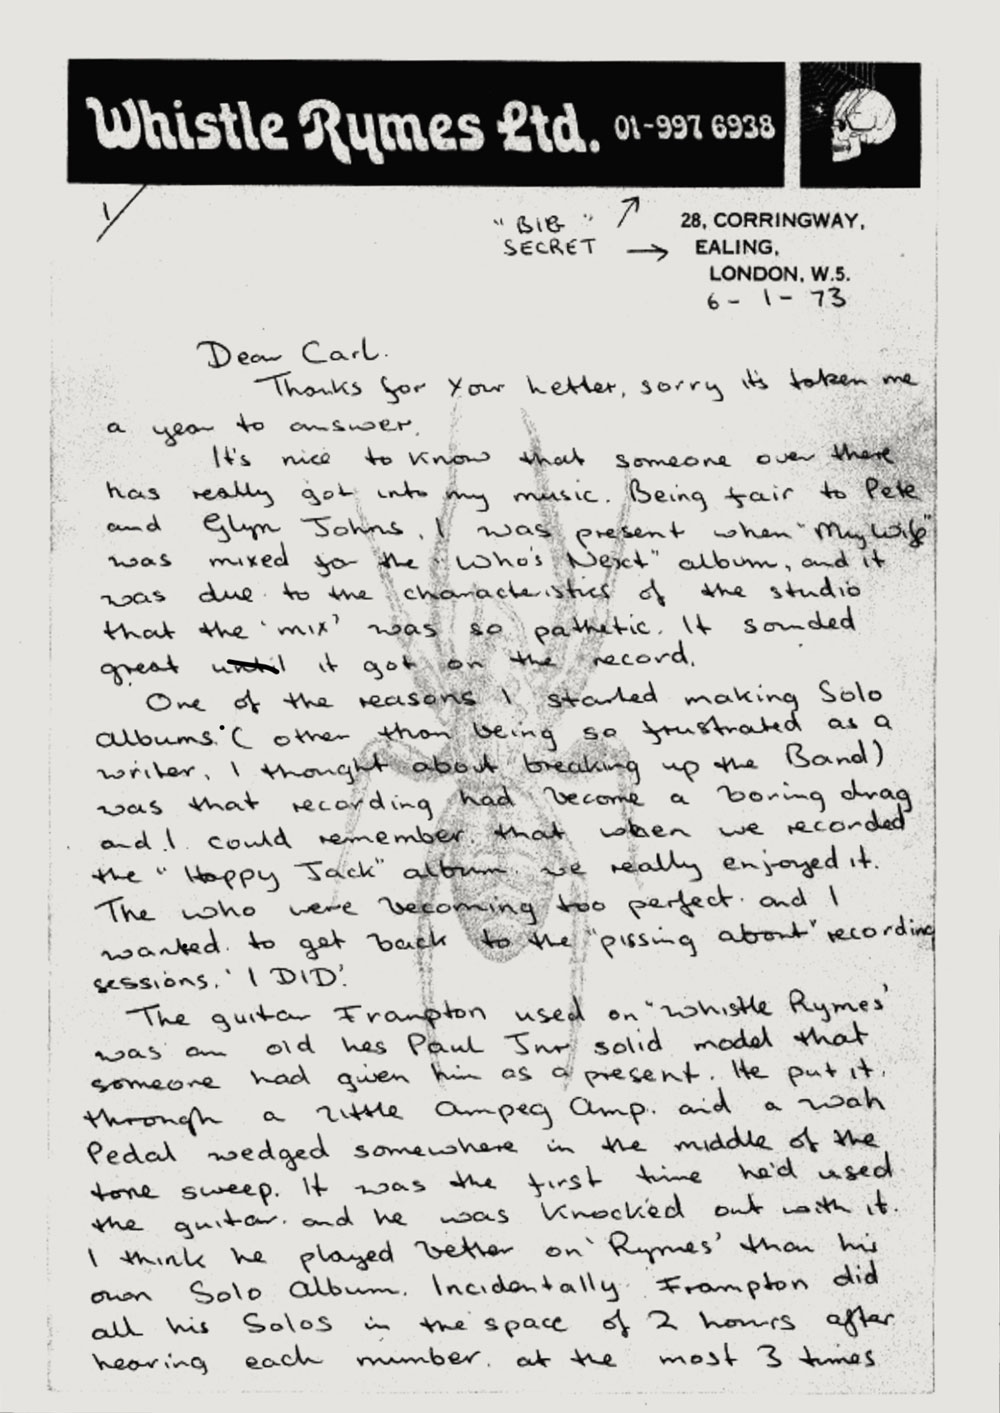 Whistle Rymes Ltd. 01-997 6938
1
"BIG"
SECRET
28, CORRINGWAY,
EALING,
LONDON, W.5.
6-1-73
Dear Carl.
Thanks for your letter, sorry it's taken me
a year to answer.
It's nice to know that someone over there
has really got into my music. Being fair to Pete
and Glyn Johns, I was present when "My Wife"
was mixed for the "Who's Next" album, and it
was due to the characteristics of the studio
that the 'mix' was so pathetic. It sounded
great until it got on the record.
One of the reasons I started making Solo
albums. (other than being so frustrated as a
writer, I thought about breaking up the Band)
was that recording had become a boring drag
and I could remember that when we recorded
the "Happy Jack" album we really enjoyed it.
The who were becoming too perfect and I
wanted to get back to the "pissing about" recording
sessions. 'I DID'.
The guitar Frampton used on "Whistle Rymes'
was an old Les Paul Jnr solid model that
someone had given him as a present. He put it
through a little Ampeg Amp. and a wah
Pedal wedged somewhere in the middle of the
tone sweep. It was the first time he'd used
the guitar and he was knocked out with it.
I think he played better on 'Rymes' than his
own Solo Album. Incidentally Frampton did
all his Solos in the space of 2 hours after
hearing each number at the most 3 times